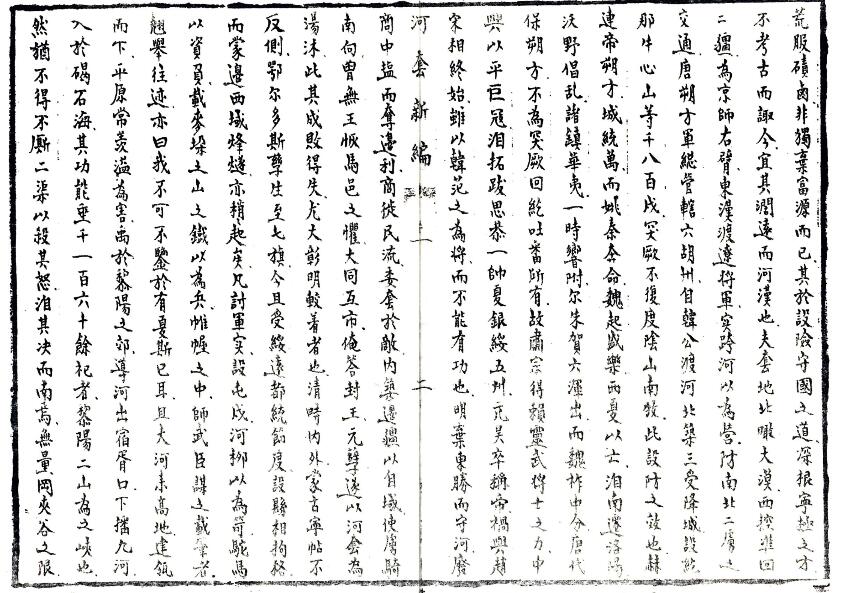 荒服磧鹵非獨棄富源而已其於設險守國之道深根寧極之才
不考古而諏今宜其濶遠而河漢也夫套地北瞰大漠西控準回
二疆為京師右臂東漢渡遼將軍實跨河以為營防南北二虜之
交通唐朔方軍緫管轄六胡州自韓公渡河北築三受降城設
那牛心山等千八百戍突厥不復度陰山南牧此設防之效也赫
連帝朔方城統萬而姚秦奔命魏起盛樂西夏以亡洎南遷洛陽
沃野倡乱諸鎮華夷一時響附尔朱賀六渾出而魏柞中分唐代
保朔方不為突厥回紇吐蕃所有故肅宗得賴靈武將士之力中
興以平巨冦洎拓跋思恭一帥夏銀綏五州元昊卒稱帝禍與趙
宋相終始雖以韓范之為將而不能有功也明棄東勝而守河廢
河套新編 二
商中塩而奪邊利商徙民流委套於敵内築邊疆以自域使虜騎
南向曽無王恢馬邑之懼大同互市俺荅封王元孽遂以河套為
湯沐此其成敗得失尤大彰明較着者也清時内外蒙古寧帖不
反側鄂尔多斯孳生至七旗今且受綏遠都統節度設縣相拘格
而蒙邊西域烽燧亦稍起矣凡討軍实設屯戍河栁以為笴駝馬
以資負載麥垛之山之鐵以為兵帷幄之中師武臣謀之載筆者
翹舉往迹亦曰我不可不鑒於有夏斯已耳且大河素高地建瓴
而下平原常羨溢為害禹於黎陽之郊導河出宿胥口下播九河
入於碣石海其功能垂千一百六十餘祀者黎陽二山為之峽也
然猶不得不厮二渠以殺其怒洎其决而南焉無量岡夾谷之限